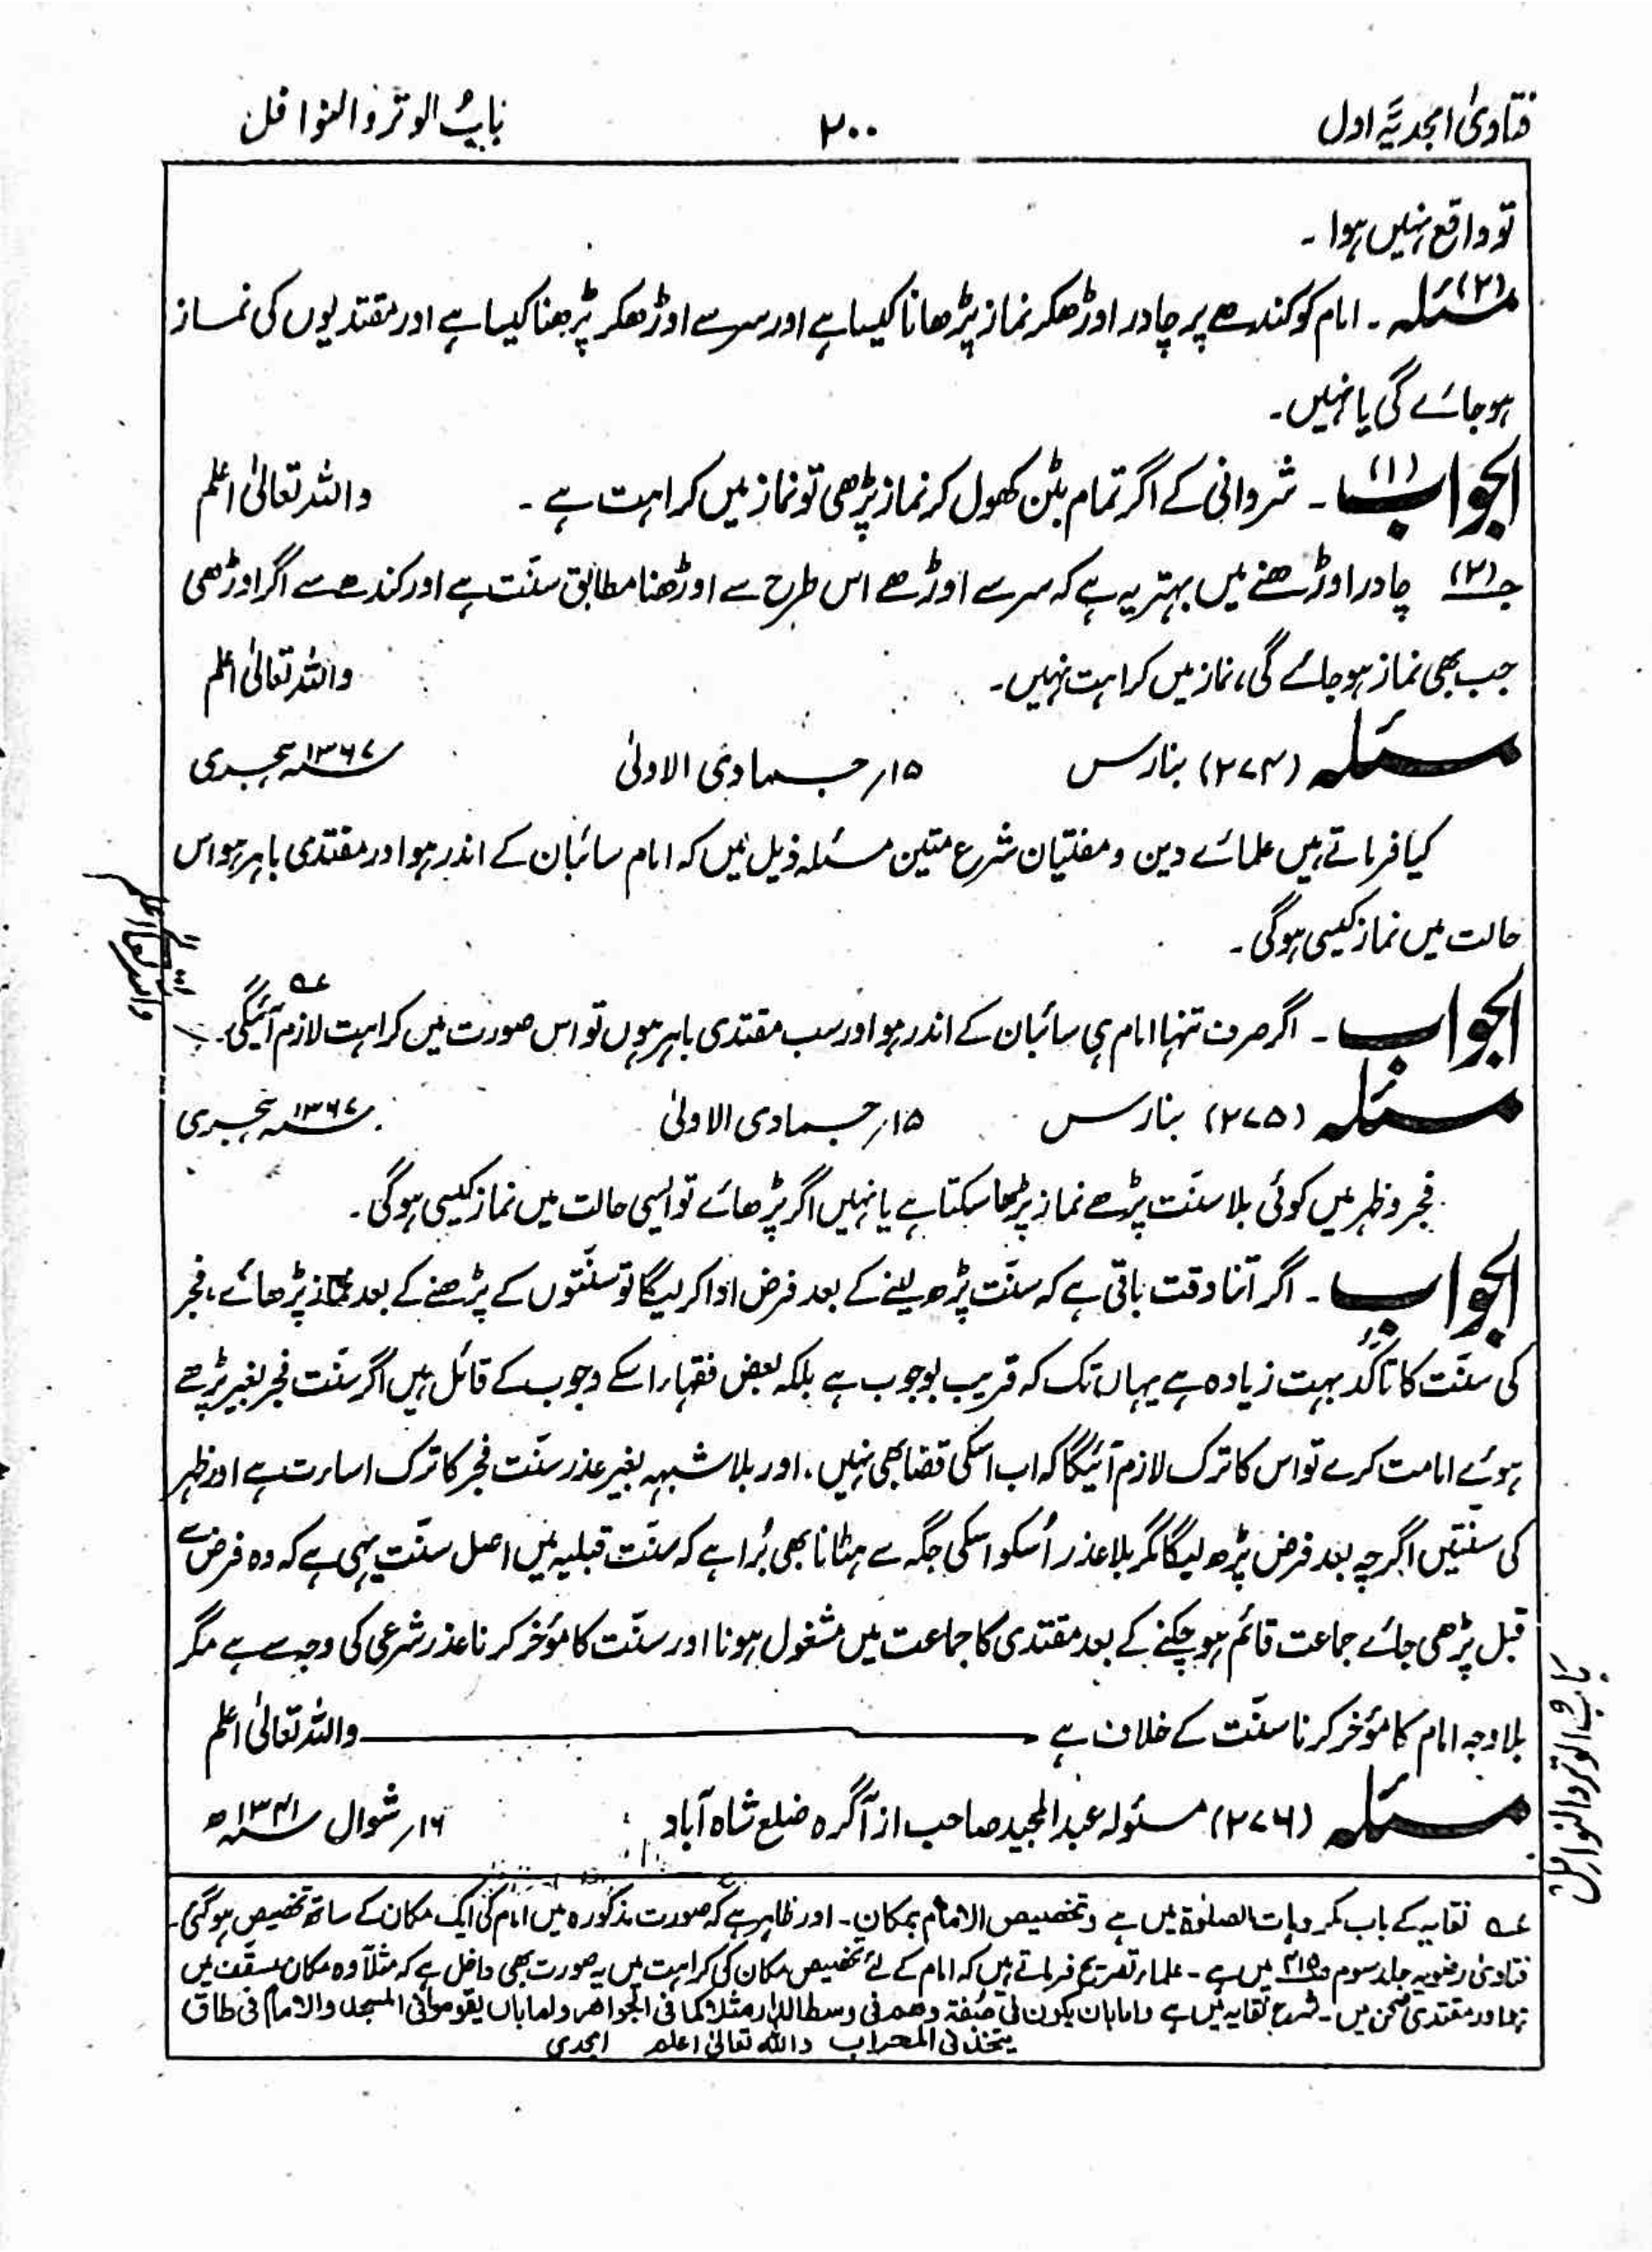 فتاویٰ امجدیَّہ اول
۲۰۰
بابُ الوتر والنوافل
تو واقع نہیں ہوا ۔
مسئلہ (۲) ۔ امام کو کندھے پر چادر اوڑھکر نماز پڑھانا کیسا ہے اور سر سے اوڑھکر پڑھنا کیسا ہے اور مقتدیوں کی نماز
ہو جائے گی یا نہیں ۔
الجواب (۱) ۔ شروانی کے اگر تمام بٹن کھول کر نماز پڑھی تو نماز میں کراہت ہے ۔ واللہ تعالیٰ اعلم
جـ (۲) چادر اوڑھنے میں بہتر یہ ہے کہ سر سے اوڑھے اس طرح سے اوڑھنا مطابق سنّت ہے اور کندھے سے اگر اوڑھی
جب بھی نماز ہو جائے گی، نماز میں کراہت نہیں ۔ واللہ تعالیٰ اعلم
مسئلہ (۲۷۴) بنارس ۱۵؍ جمادی الاولیٰ ۱۳۶۷ سنہ ہجری
کیا فرماتے ہیں علمائے دین و مفتیان شرع متین مسئلہ ذیل میں کہ امام سائبان کے اندر ہو اور مقتدی باہر ہو اس
حالت میں نماز کیسی ہوگی ۔
الجواب ۔ اگر صرف تنہا امام ہی سائبان کے اندر ہو اور سب مقتدی باہر ہوں تو اس صورت میں کراہت لازم آئیگی ۔ عہ
واللہ تعالیٰ اعلم
مسئلہ (۲۷۵) بنارس ۱۵؍ جمادی الاولیٰ ۱۳۶۷ سنہ ہجری
فجر و ظہر میں کوئی بلا سنّت پڑھے نماز پڑھا سکتا ہے یا نہیں اگر پڑھائے تو ایسی حالت میں نماز کیسی ہوگی ۔
الجواب ۔ اگر اتنا وقت باقی ہے کہ سنّت پڑھ لینے کے بعد فرض ادا کر لیگا تو سنّتوں کے پڑھنے کے بعد نماز پڑھائے، فجر
کی سنّت کا تاکّد بہت زیادہ ہے یہاں تک کہ قریب بوجوب ہے بلکہ بعض فقہاء اسکے وجوب کے قائل ہیں اگر سنّت فجر بغیر پڑھے
ہوئے امامت کرے تو اس کا ترک لازم آئیگا کہ اب اسکی قضا بھی نہیں، اور بلا شبہہ بغیر عذر سنّت فجر کا ترک اساءت ہے اور ظہر
کی سنّتیں اگرچہ بعد فرض پڑھ لیگا مگر بلا عذر اُسکو اسکی جگہ سے ہٹانا بھی بُرا ہے کہ سنّت قبلیہ میں اصل سنّت یہی ہے کہ وہ فرض سے
قبل پڑھی جائے جماعت قائم ہو چکنے کے بعد مقتدی کا جماعت میں مشغول ہونا اور سنّت کا مؤخر کرنا عذر شرعی کی وجہ سے ہے مگر
بلا وجہ امام کا مؤخر کرنا سنّت کے خلاف ہے ۔ واللہ تعالیٰ اعلم
مسئلہ (۲۷۶) مسئولہ عبد المجید صاحب از آگرہ ضلع شاہ آباد ۱۶؍ شوال ۱۳۴۱ سنہ ھ
باب الوتر والنوافل
عہ نقایہ کے باب مکروہات الصلوٰۃ میں ہے وتخصیص الامام بمکان ۔ اور ظاہر ہے کہ صورت مذکورہ میں امام کی ایک مکان کے ساتھ تخصیص ہو گئی ۔
فتاویٰ رضویہ جلد سوم ص ۴۱۵ میں ہے ۔ علماء تصریح فرماتے ہیں کہ امام کے لئے تخصیص مکان کی کراہت میں یہ صورت بھی داخل ہے کہ مثلًا وہ مکان مسقّف میں
ہو اور مقتدی صحن میں ۔ شروح نقایہ میں ہے واما بان یکون فی صُفّۃ وھم فی وسط الدار مثلا کما فی الجواھر واما بان یقوموا فی المسجد والامام فی طاق
یتخذ فی المحراب واللہ تعالیٰ اعلم امجدی